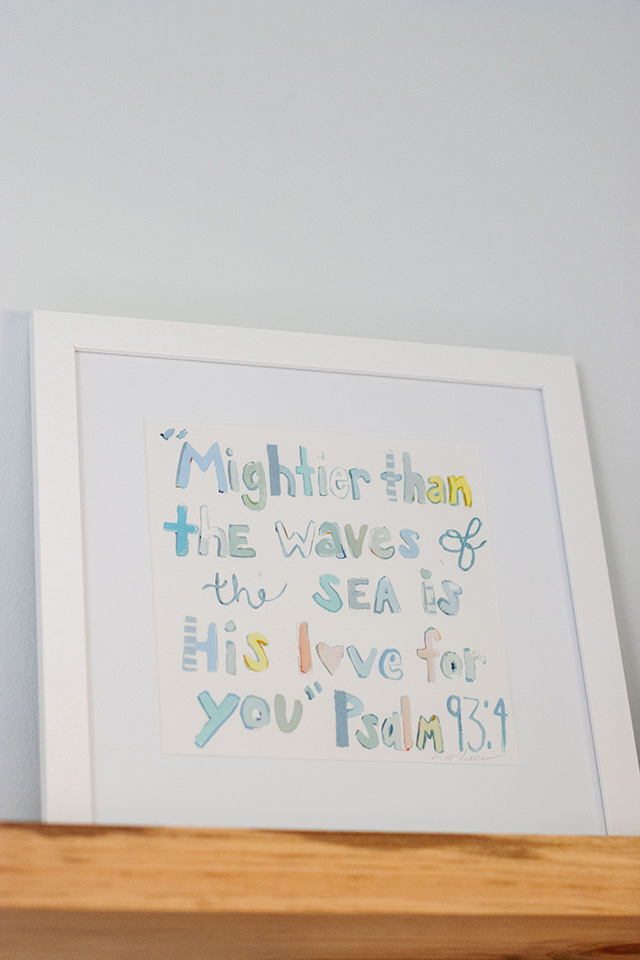 "Mightier than
the waves of
the SEA is
His love for
you" Psalm 93:4